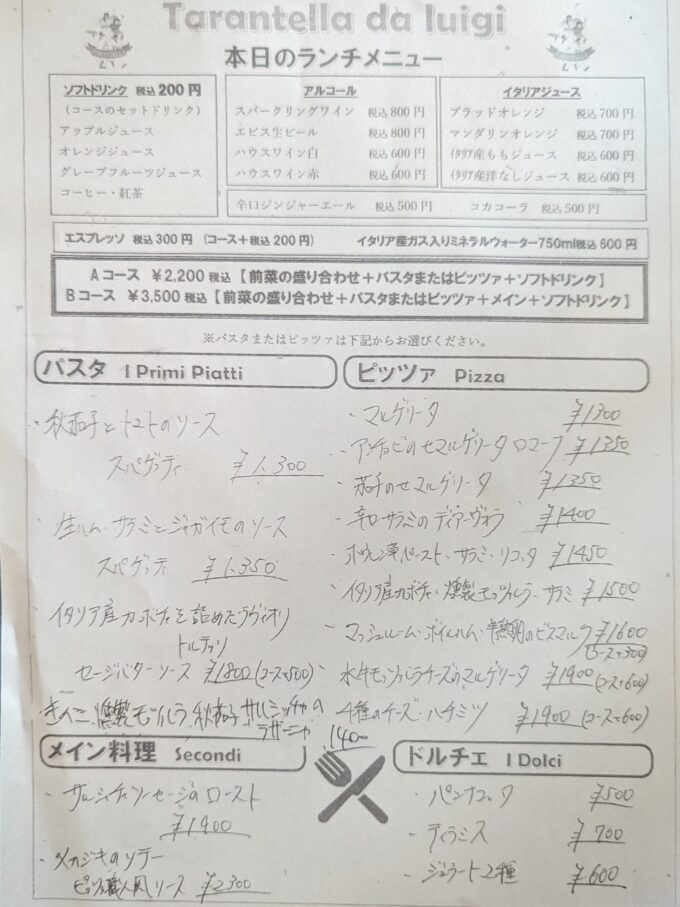 Tarantella da luigi
本日のランチメニュー
ソフトドリンク 税込200円
（コースのセットドリンク）
アップルジュース
オレンジジュース
グレープフルーツジュース
コーヒー・紅茶
アルコール
スパークリングワイン 税込800円
エビス生ビール 税込800円
ハウスワイン白 税込600円
ハウスワイン赤 税込600円
イタリアジュース
ブラッドオレンジ 税込700円
マンダリンオレンジ 税込700円
イタリア産ももジュース 税込600円
イタリア産洋なしジュース 税込600円
辛口ジンジャーエール 税込500円 コカコーラ 税込500円
エスプレッソ 税込300円 （コース＋税込200円） イタリア産ガス入りミネラルウォーター750ml税込600円
Aコース ￥2,200税込【前菜の盛り合わせ＋パスタまたはピッツァ＋ソフトドリンク】
Bコース ￥3,500税込【前菜の盛り合わせ＋パスタまたはピッツァ＋メイン＋ソフトドリンク】
※パスタまたはピッツァは下記からお選びください。
パスタ I Primi Piatti
・秋茄子とトマトのソース
スパゲッティ ￥1.300
・生ハム・サラミとジャガイモのソース
スパゲッティ ￥1.350
・イタリア産カボチャを詰めたラヴィオリ
トルテッリ
セージバターソース ￥1800(コース+500)
きのこ、燻製モッツァレラ、秋茄子、サルシッチャの
ラザーニャ 1400
ピッツァ Pizza
・マルゲリータ ￥1300
・アンチョビのせマルゲリータ ロマーナ ￥1350
・茄子のせマルゲリータ ￥1350
・辛口サラミのディアーヴォラ ￥1400
・ホウレン草ペースト・サラミ・リコッタ ￥1450
・イタリア産カボチャ・燻製モッツァレラ・サラミ ￥1500
・マッシュルーム・ボイルハム・半熟卵のビスマルク ￥1600
(コース+300)
・水牛モッツァレラチーズのマルゲリータ ￥1900(コース+600)
・4種のチーズ・ハチミツ ￥1900(コース+600)
メイン料理 Secondi
・サルシッチャソーセージのロースト
￥1900
・メカジキのソテー
ピッツァ職人風ソース ￥2300
ドルチェ I Dolci
・パンナコッタ ￥500
・ティラミス ￥700
・ジェラート2種 ￥600